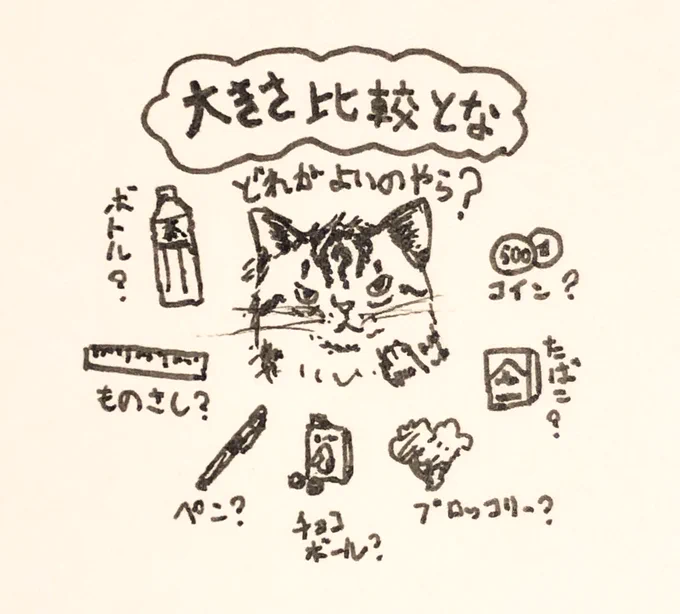 大きさ比較とな
どれがよいのやら?
ボトル?
茶
500
コイン?
ものさし?
たばこ?
ペン?
チョコ
ボール?
ブロッコリー?